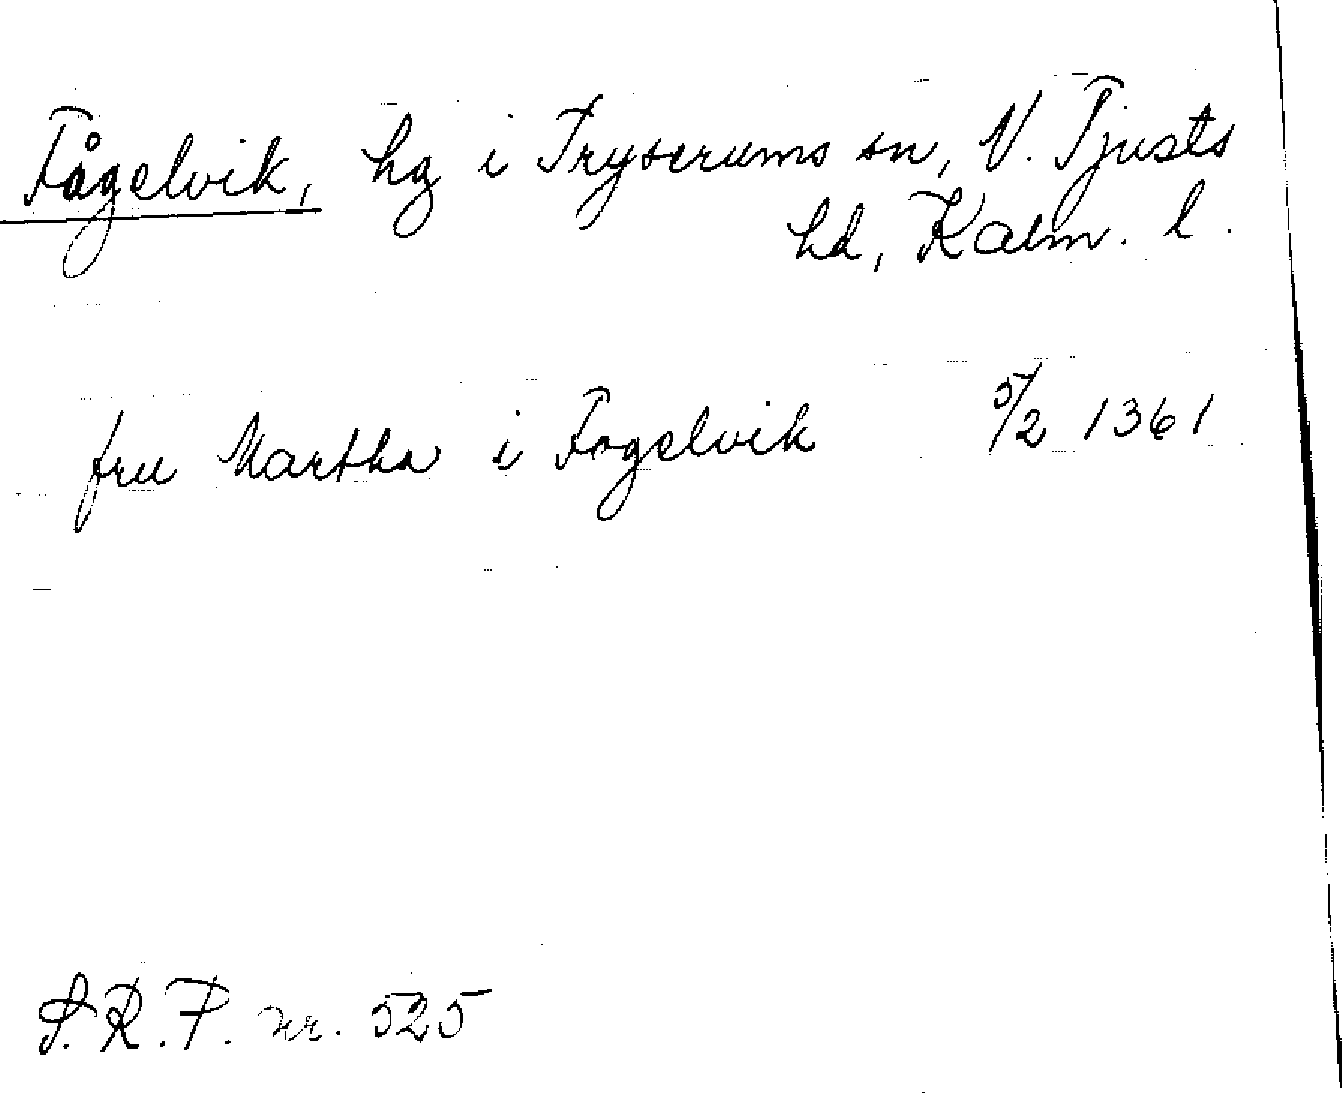 Fågelvik, hg i Tryserums sn, N. Tjusts
hd, Kalm. l.
fru Martha i Fogelvik 5/2 1361
S.R.P. nr. 525